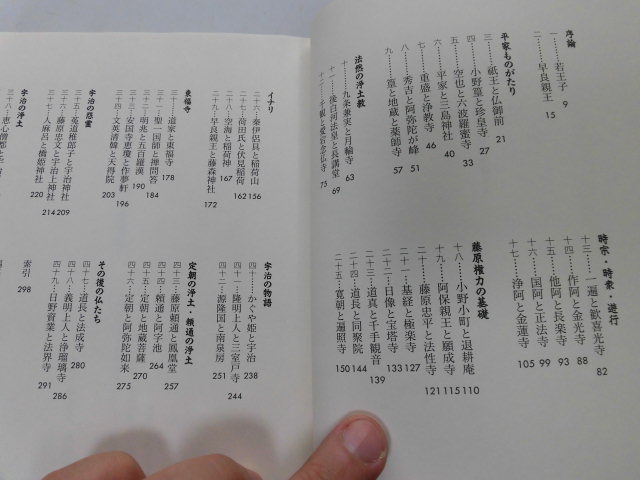 序論
一……若王子 9
二……早良親王 15
平家ものがたり
三……祇王と仏御前 21
四……小野篁と珍皇寺 27
五……空也と六波羅蜜寺 33
六……平家と三島神社 40
七……重盛と浄教寺 46
八……秀吉と阿弥陀が峰 51
九……篁と地蔵と薬師寺 57
法然の浄土教
十……九条兼実と月輪寺 63
十一……後白河法皇と長講堂 69
十二……千観と愛宕念仏寺 75
時宗・時衆・遊行
十三……一遍と歓喜光寺 82
十四……作阿と金光寺 88
十五……他阿と長楽寺 93
十六……国阿と正法寺 99
十七……浄阿と金蓮寺 105
藤原権力の基礎
十八……小野小町と退耕庵 110
十九……阿保親王と願成寺 115
二十……藤原忠平と法性寺 121
二十一……基経と極楽寺 127
二十二……日像と宝塔寺 133
二十三……道真と千手観音 139
二十四……道長と同聚院 144
二十五……寛朝と遍照寺 150
イナリ
二十六……秦伊呂具と稲荷山 156
二十七……荷田氏と伏見稲荷 162
二十八……空海と稲荷神 167
二十九……早良親王と藤森神社 172
東福寺
三十……道家と東福寺 178
三十一……聖一国師と禅問答 184
三十二……明兆と五百羅漢 190
三十三……安国寺恵瓊と作夢軒 196
三十四……文英清韓と天得院 203
宇治の怨霊
三十五……菟道稚郎子と宇治神社 209
三十六……藤原忠文と宇治上神社 214
三十七……人麻呂と橋姫神社 220
宇治の浄土
三十八……恵心僧都と
宇治の物語
四十……かぐや姫と宇治 238
四十一……隆明上人と三室戸寺 244
四十二……源隆国と南泉房 251
定朝の浄土・頼通の浄土
四十三……藤原頼通と鳳凰堂 257
四十四……頼通と阿字池 264
四十五……定朝と地蔵菩薩 270
四十六……定朝と阿弥陀如来 275
その後の仏たち
四十七……道長と法成寺 280
四十八……義明上人と浄瑠璃寺 286
四十九……日野資業と法界寺 291
索引 298